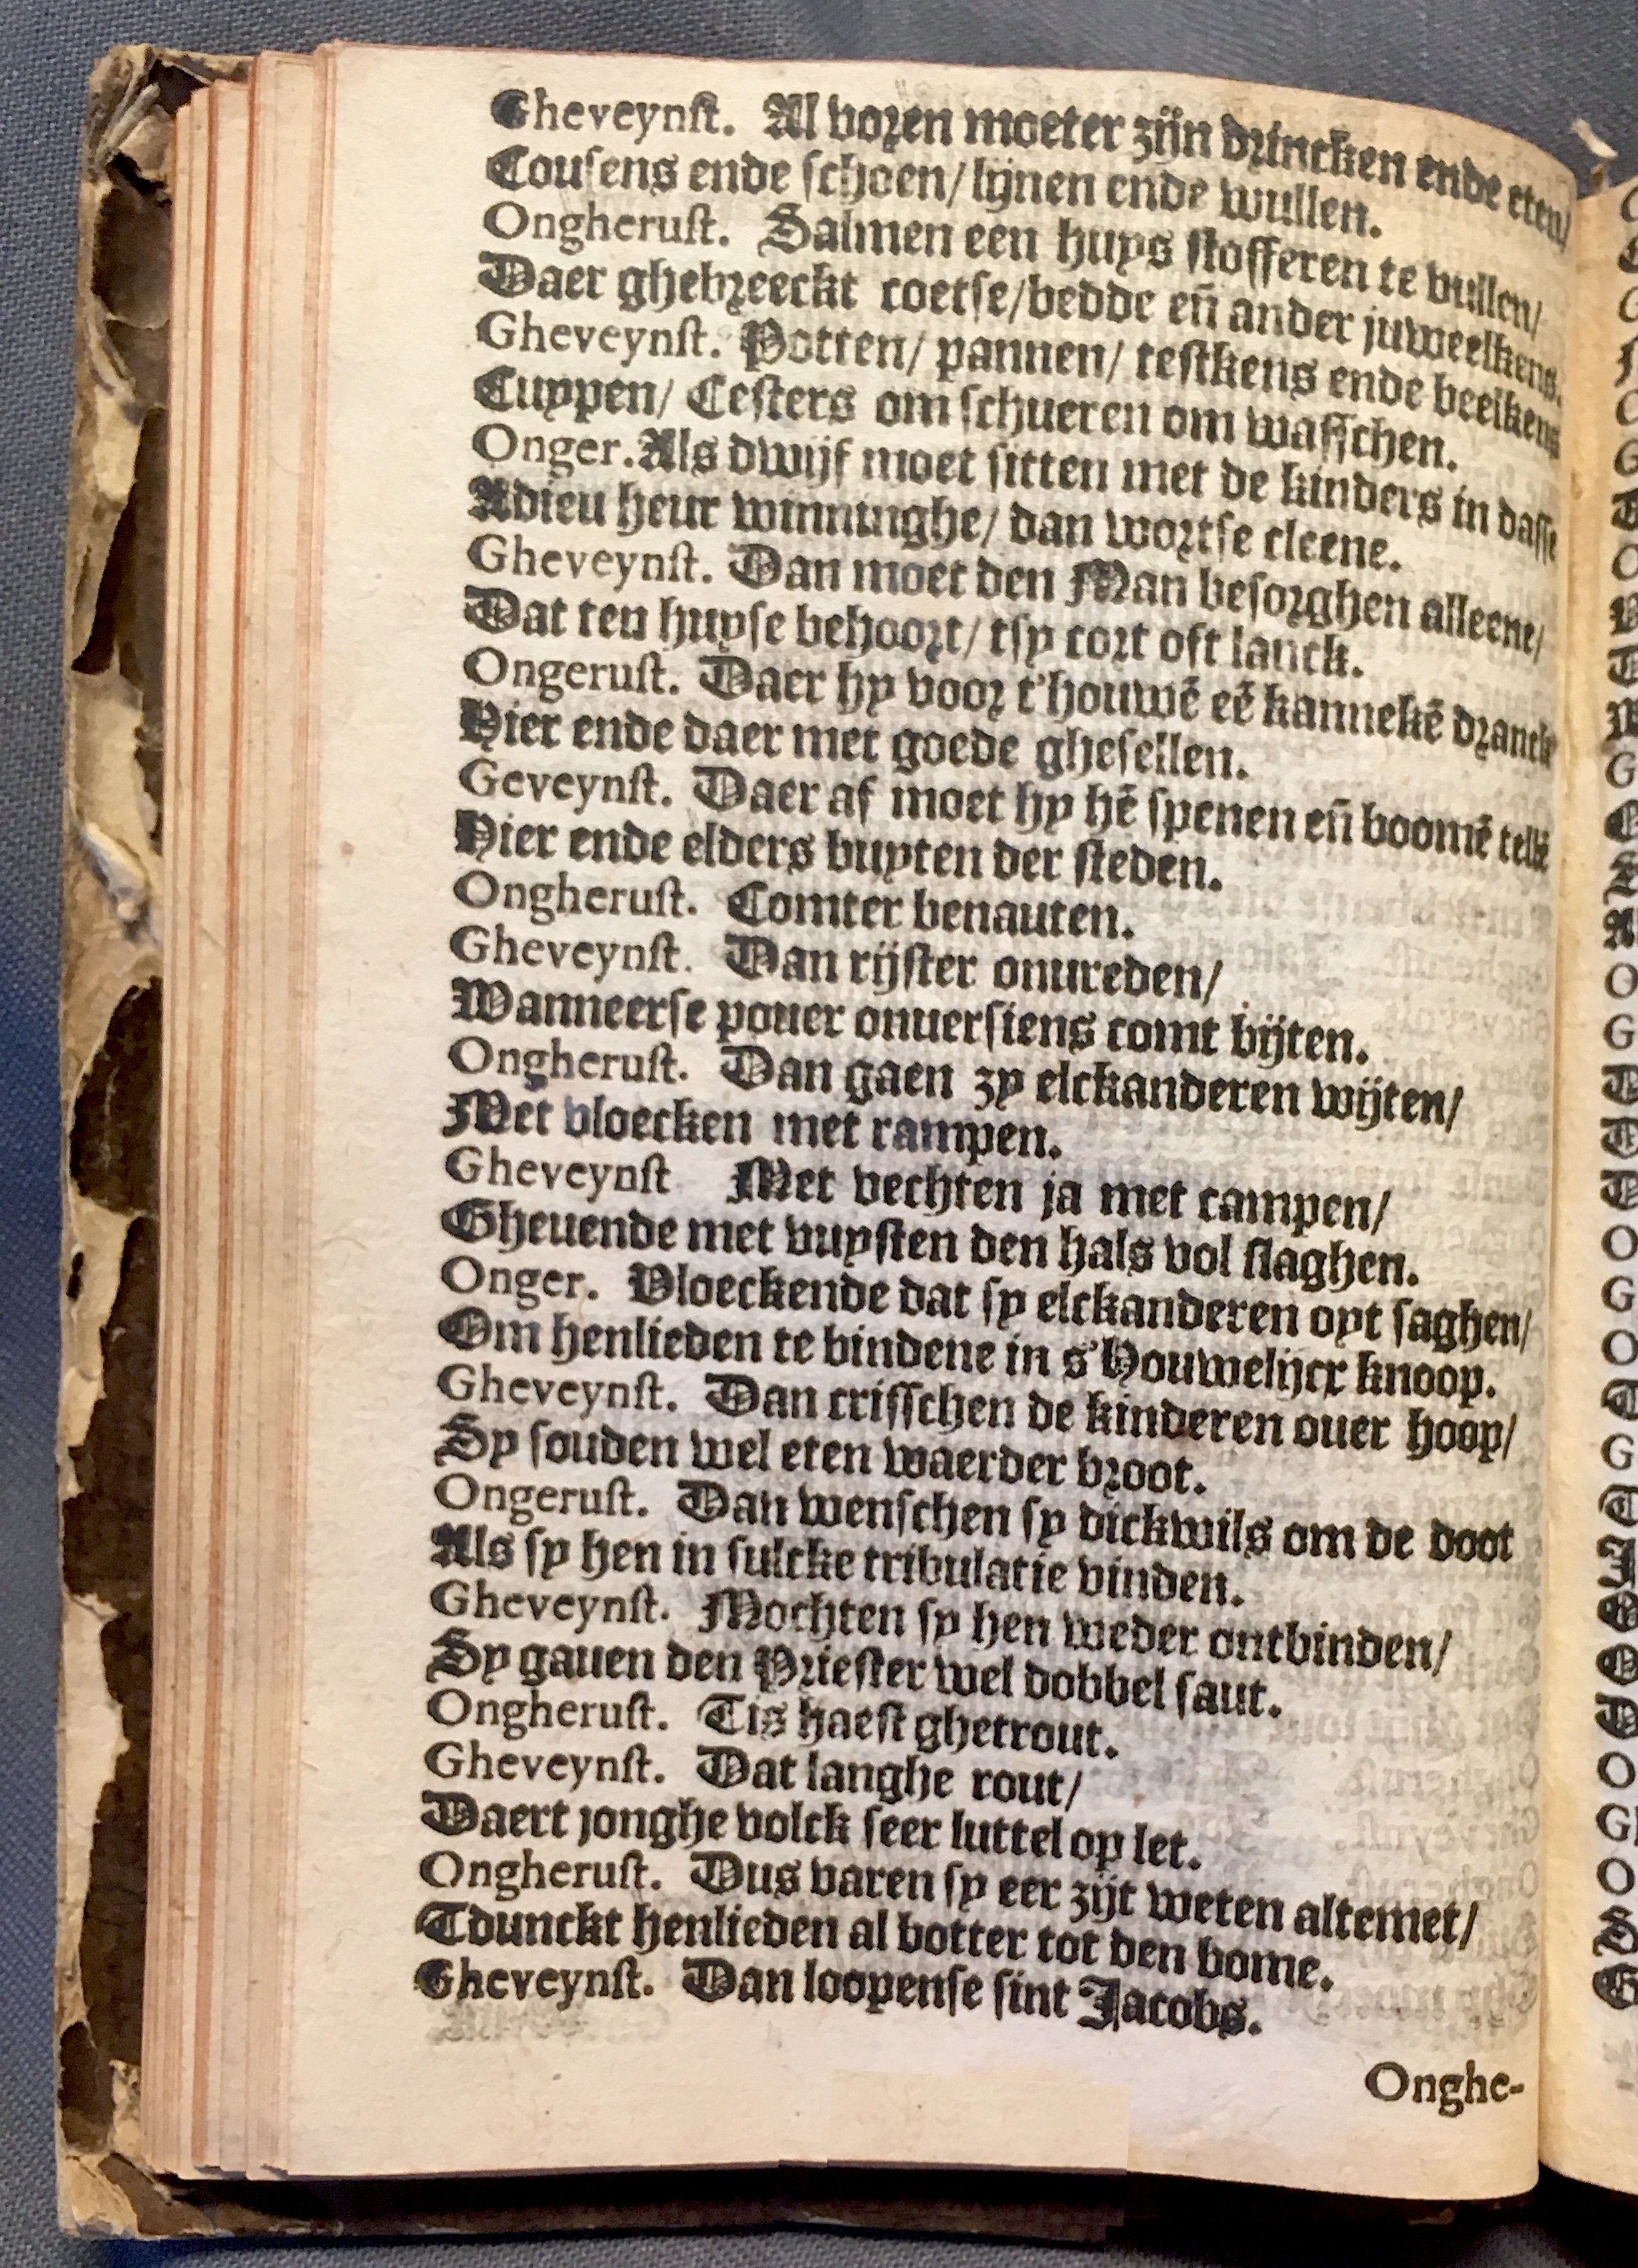 Gheveynſt. Al voren moeter zijn drincken ende eten/
Couſens ende ſchoen/ lijnen ende wullen.
Ongheruſt. Salmen een huys ſtofferen te vullen/
Daer ghebreeckt coetſe/bedde eñ ander juweelkens.
Gheveynſt. Potten/ pannen/ teſtkens ende beelkens
Cuypen/ Ceſters om ſchueren om waſſchen.
Onger. Als dwijf moet ſitten met de kinders in daſſe
Adieu heur winninghe/ dan wortſe cleene.
Gheveynſt. Dan moet den Man beſorghen alleene/
Dat ten huyſe behoort/ tſy cort oft lanck.
Ongeruſt. Daer hy voor t'houwē eē kannekē dranck
Hier ende daer met goede gheſellen.
Geveynſt. Daer af moet hy hē ſpenen eñ boomē tellē
Hier ende elders buyten der ſteden.
Ongheruſt. Comter benauten.
Gheveynſt. Dan rijſter onureden/
Wanneerſe pouer onuerſiens comt bijten.
Ongheruſt. Dan gaen zy elckanderen wijten/
Met vloecken met rampen.
Gheveynſt Met vechten ja met campen/
Gheuende met vuyſten den hals vol ſlaghen.
Onger. Vloeckende dat ſy elckanderen oyt ſaghen/
Om henlieden te bindene in s'Houwelijcx knoop.
Gheveynſt. Dan criſſchen de kinderen ouer hoop/
Sy ſouden wel eten waerder broot.
Ongeruſt. Dan wenſchen ſy dickwils om de doot
Als ſy hen in ſulcke tribulatie vinden.
Gheveynſt. Mochten ſy hen weder ontbinden/
Sy gauen den Prieſter wel dobbel ſaut.
Ongheruſt. Tis haeſt ghetrout.
Gheveynſt. Dat langhe rout/
Daert jonghe volck ſeer luttel op let.
Ongheruſt. Dus varen ſy eer zijt weten altemet/
Tdunckt henlieden al botter tot den bome.
Gheveynſt. Dan loopenſe ſint Jacobs.
Onghe-